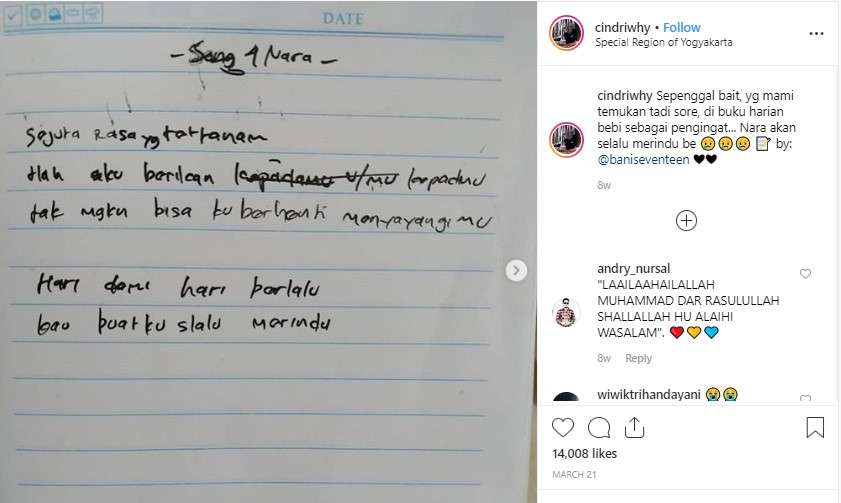 DATE
- Song 4 Nara -
Sejuta Rasa yg tertanam
tlah aku berikan kepadamu u/mu kepadmu
tak mgkn bisa ku berhenti menyayangi mu
Hari demi hari berlalu
kau buatku slalu merindu
cindriwhy • Follow
Special Region of Yogyakarta
cindriwhy Sepenggal bait, yg mami
temukan tadi sore, di buku harian
bebi sebagai pengingat... Nara akan
selalu merindu be 😢😣😣📝 by:
@baniseventeen 🖤🖤
8w
andry_nursal
"LAAILAAHAILALLAH
MUHAMMAD DAR RASULULLAH
SHALLALLAH HU ALAIHI
WASALAM". ❤️💛💙
8w Reply
wiwiktrihandayani 😭😭
14,008 likes
MARCH 21